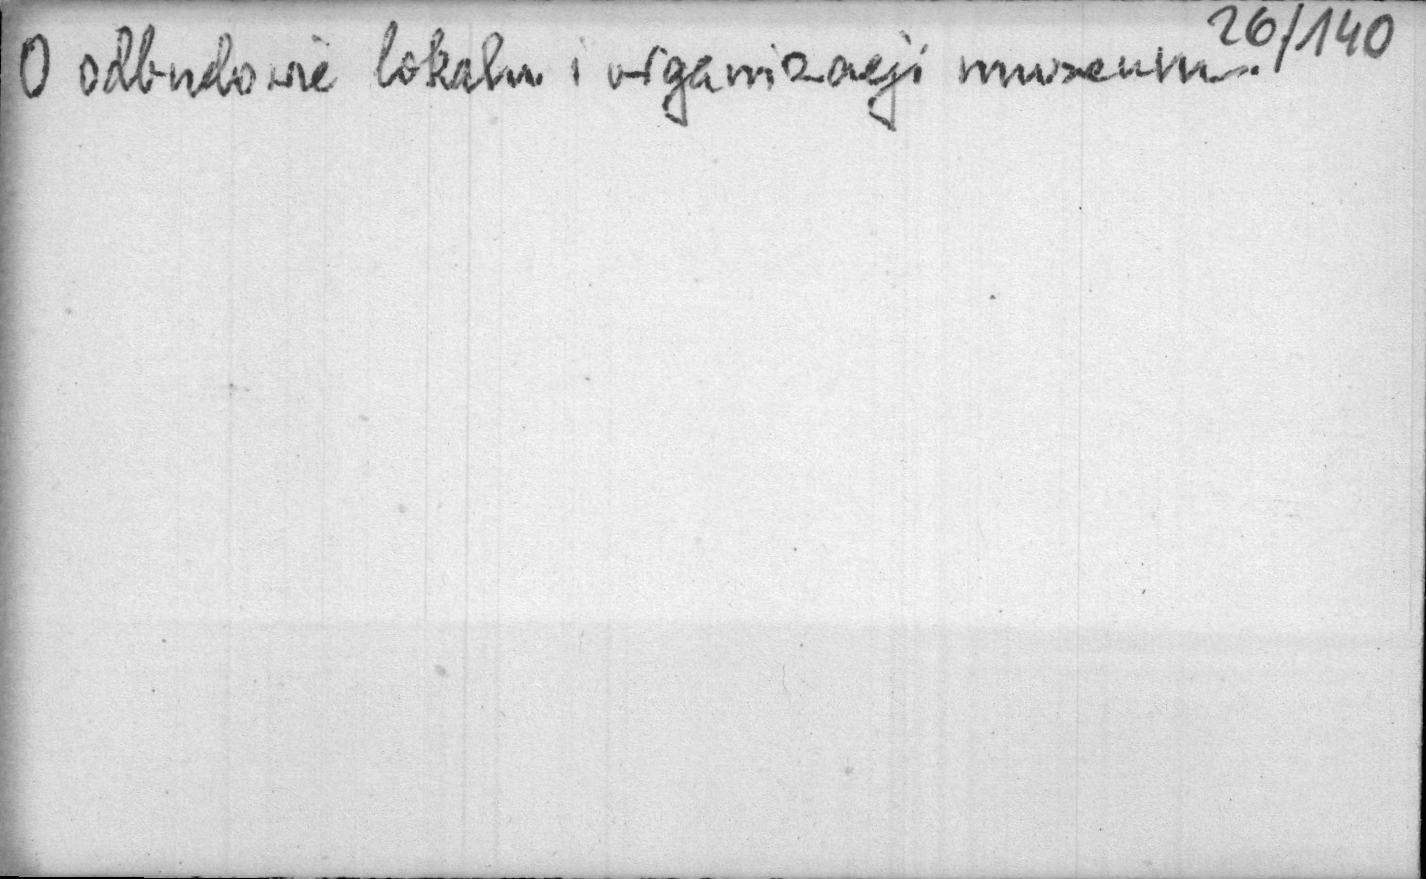 26/140
O odbudowie lokalu i organizacji museum.